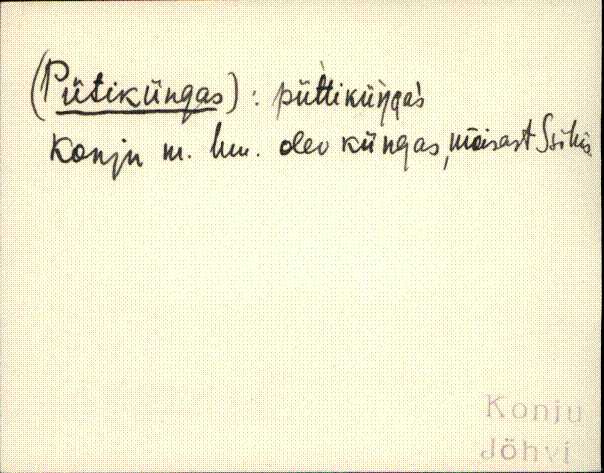 (Pütiküngas): püttiküŋgàs
Konju m. hm. olev küngas, mõisast S sihis
Konju
Jõhvi